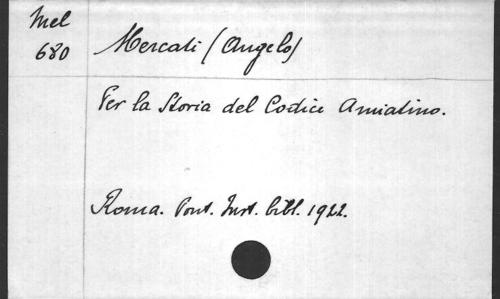 Mel
680
Mercati (Angelo)
Per la Storia del Codice Amiatino.
Roma. Pont. Inst. bibl. 1922.